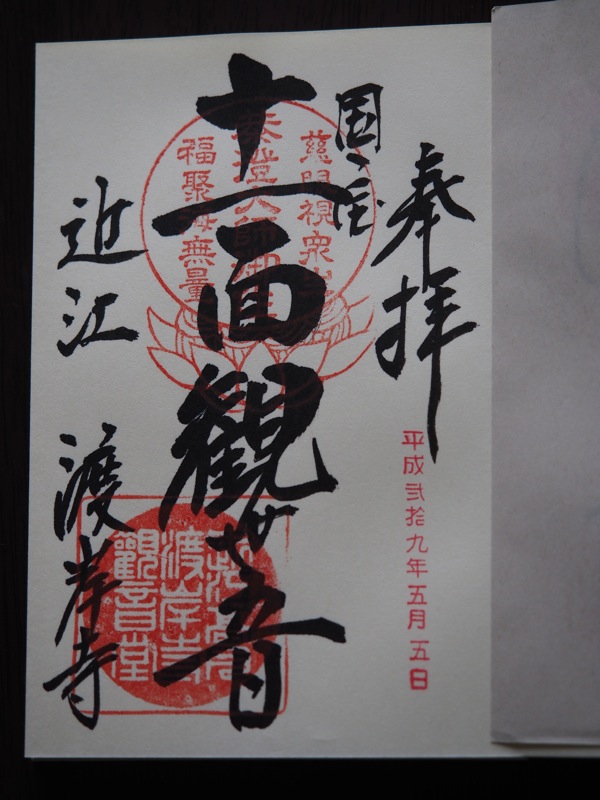 奉拝
平成弐拾九年五月五日
国宝
十一面觀世音
慈眼視衆生
泰澄大師
福聚海無量
渡岸寺
觀音堂
近江 渡岸寺